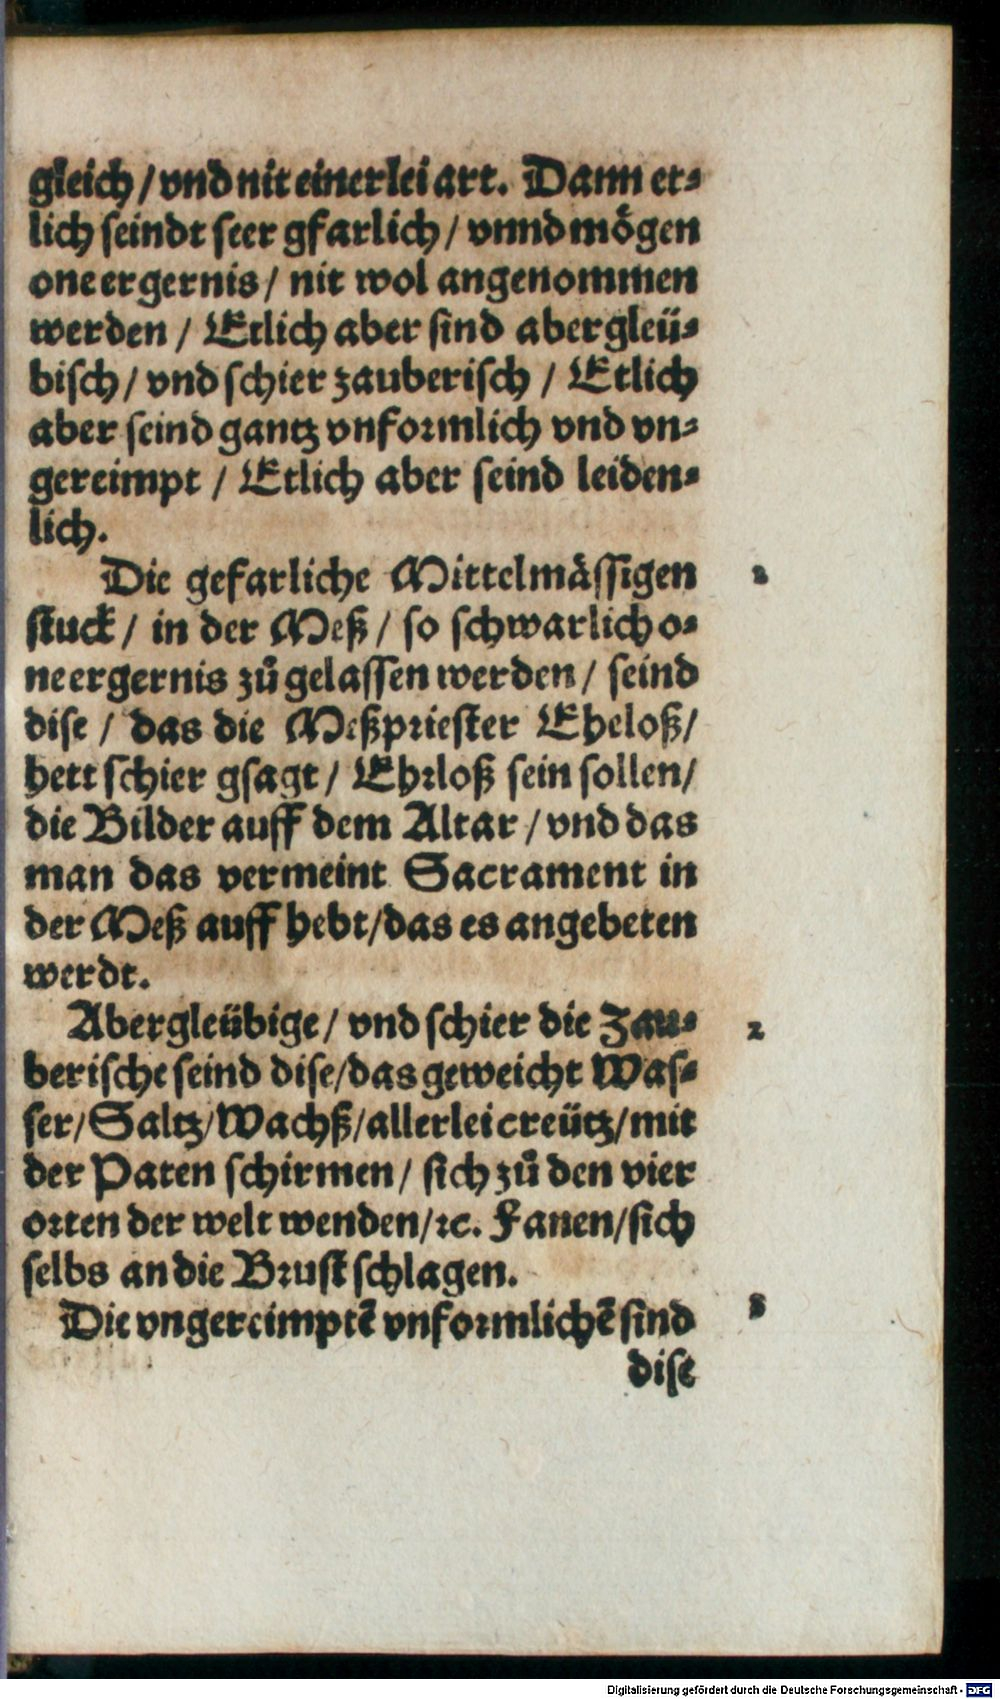 gleich / vnd nit einerlei art. Dann et⸗
lich seindt seer gfarlich / vnnd mögen
one ergernis / nit wol angenommen
werden / Etlich aber sind abergleü⸗
bisch / vnd schier zauberisch / Etlich
aber seind gantz vnformlich vnd vn⸗
gereimpt / Etlich aber seind leiden⸗
lich.
Die gefarliche Mittelmässigen
stuck / in der Meß / so schwarlich o⸗
ne ergernis zů gelassen werden / seind
dise / das die Meßpriester Eheloß /
hett schier gsagt / Ehrloß sein sollen /
die Bilder auff dem Altar / vnd das
man das vermeint Sacrament in
der Meß auff hebt / das es angebeten
werdt.
Abergleübige / vnd schier die Zau⸗ 2
berische seind dise / das geweicht Was⸗
ser / Saltz / Wachß / allerlei creütz / mit
der Paten schirmen / sich zů den vier
orten der welt wenden / ꝛc. Fanen / sich
selbs an die Brust schlagen.
Die vngereimptẽ vnformlichẽ sind 3
dise
Digitalisierung gefördert durch die Deutsche Forschungsgemeinschaft - DFG